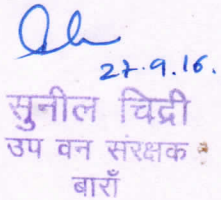 27.9.16.
सुनील चिद्री
उप वन संरक्षक
बाराँ